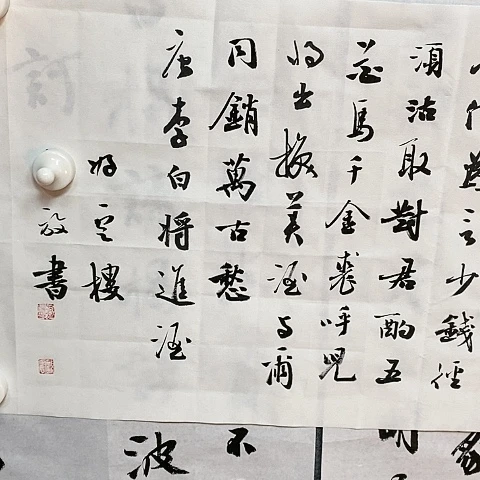 人何為言少錢徑
湏沽取對君酌五
花馬千金裘呼兒
將出換美酒與爾
同銷萬古愁
唐李白將進酒
樓
書
不
波